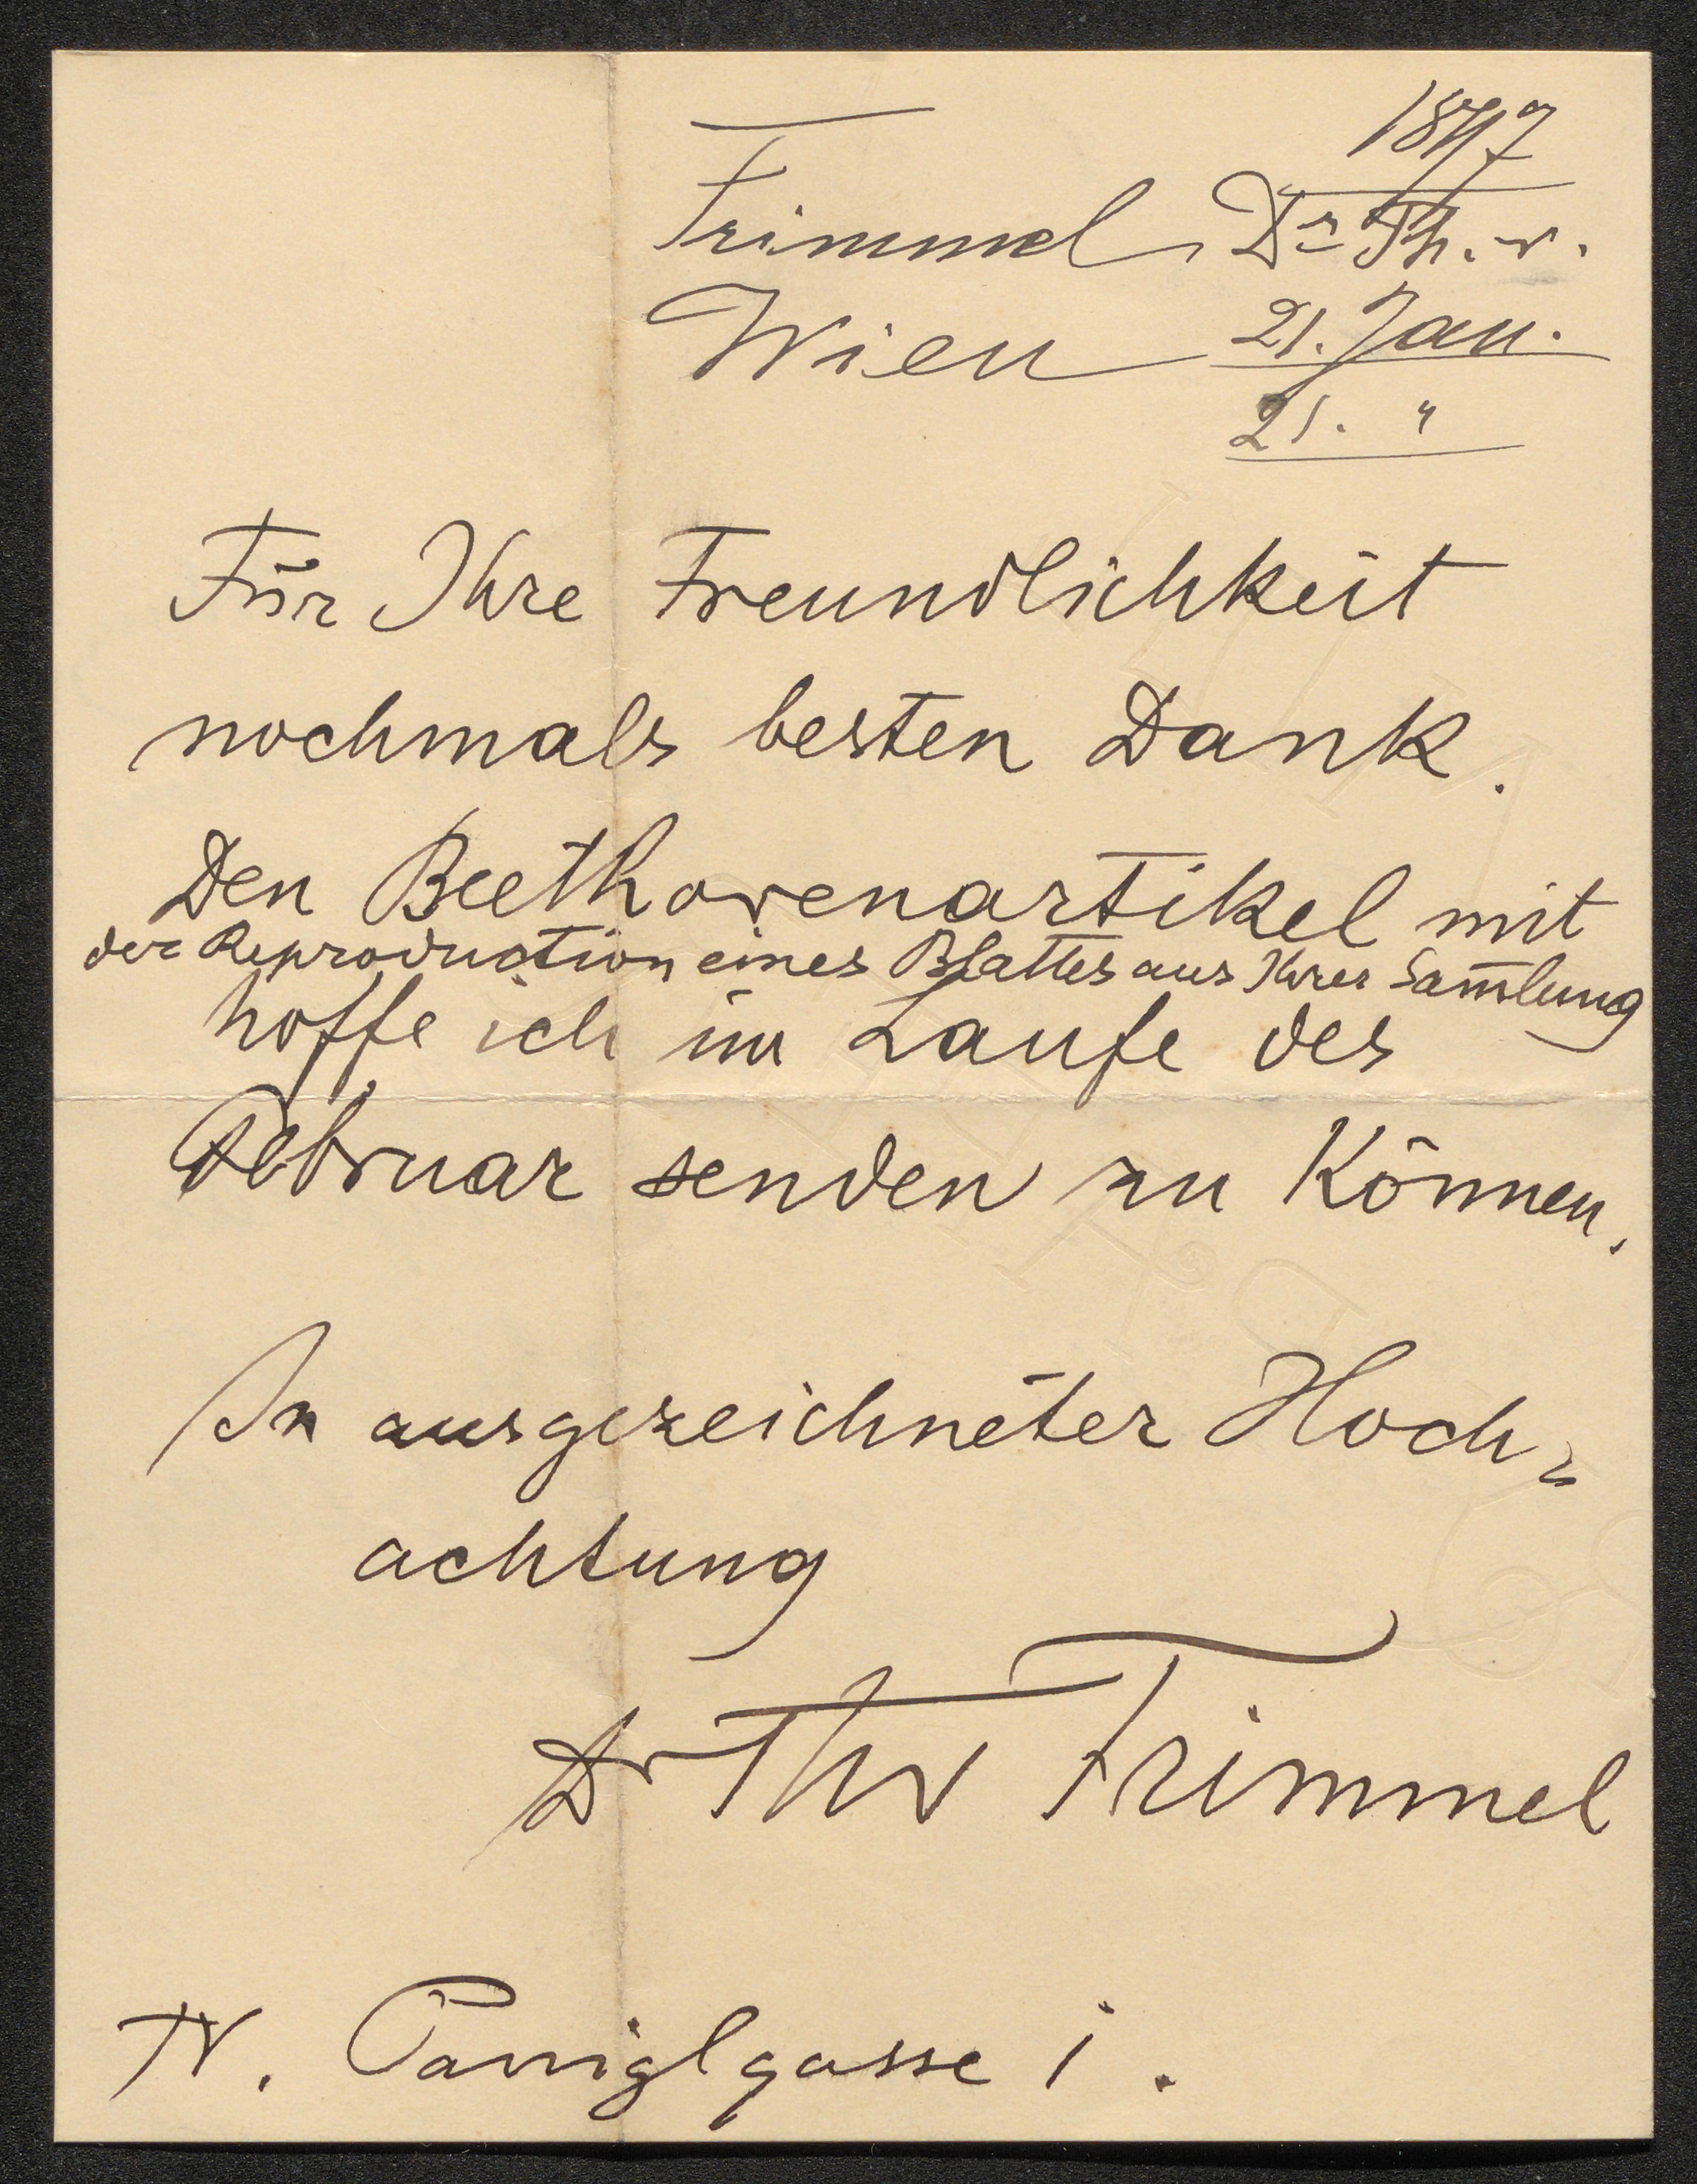 1897
Frimmel, Dr Th. v.
Wien 21. Jan.
21. "
Für Ihre Freundlichkeit
nochmals besten Dank.
Den Beethovenartikel mit
der Reproduction eines Blattes aus Ihrer Sam̅lung
hoffe ich im Laufe des
Februar senden zu können.
In ausgezeichneter Hoch=
achtung
Dr Th v Frimmel
IV. Paniglgasse 1.